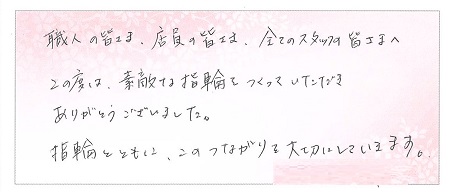 職人の皆さま、店員の皆さま、全てのスタッフの皆さまへ
この度は、素敵な指輪をつくっていただき
ありがとうございました。
指輪とともに、このつながりを大切にしていきます。